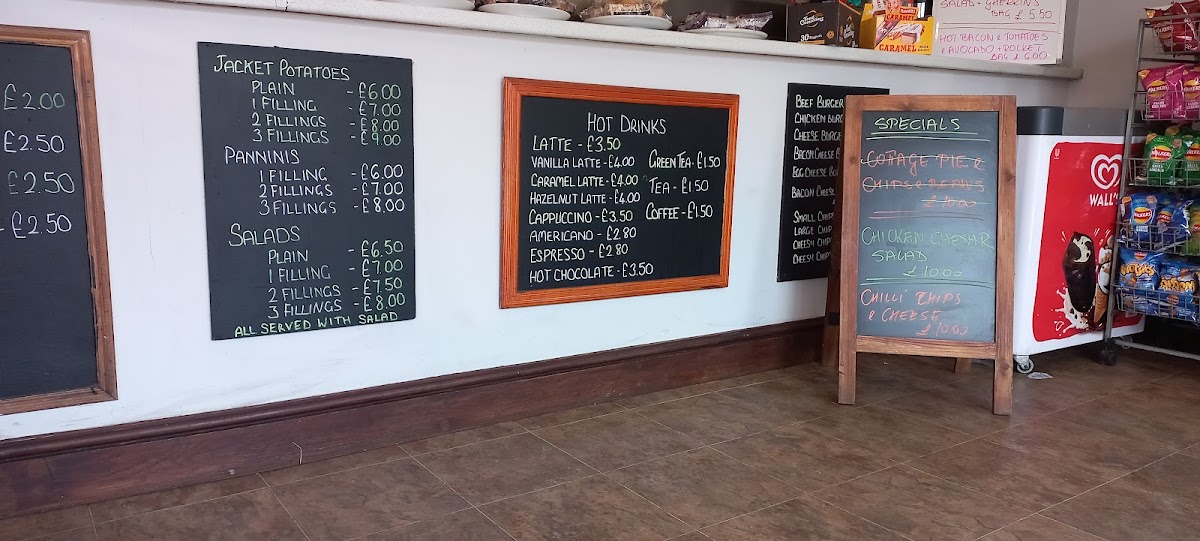 £2.00
£2.50
£2.50
- £2.50
JACKET POTATOES
PLAIN - £6.00
1 FILLING - £7.00
2 FILLINGS - £8.00
3 FILLINGS - £9.00
PANNINIS
1 FILLING - £6.00
2 FILLINGS - £7.00
3 FILLINGS - £8.00
SALADS
PLAIN - £6.50
1 FILLING - £7.00
2 FILLINGS - £7.50
3 FILLINGS - £8.00
ALL SERVED WITH SALAD
HOT DRINKS
LATTE - £3.50
VANILLA LATTE - £4.00
CARAMEL LATTE - £4.00
HAZELNUT LATTE - £4.00
CAPPUCCINO - £3.50
AMERICANO - £2.80
ESPRESSO - £2.80
HOT CHOCOLATE - £3.50
GREEN TEA - £1.50
TEA - £1.50
COFFEE - £1.50
BEEF BURGER
CHICKEN BURG
CHEESE BURGE
BACON CHEESE B
EGG CHEESE BU
BACON CHEESE
SMALL CHIPS
LARGE CHIP
CHEESY CHIP
CHEESY CHIP
SPECIALS
COTTAGE PIE &
CHIPS & BEANS
£10.00
CHICKEN CAESAR
SALAD
£10.00
CHILLI CHIPS
& CHEESE
£10.00
SALAD + GHERKINS
BAG £5.50
HOT BACON & TOMATOES
& AVOCADO + ROCKET
BAG £6.00
CARAMEL
CARAMEL
WALL'S
WALKERS
WALKERS